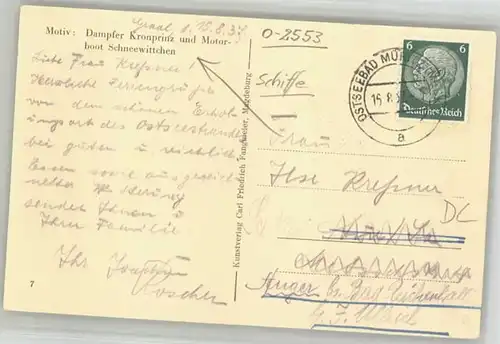 Motiv: Dampfer Kronprinz und Motor-
boot Schneewittchen
Graal, d. 15.8.37
Liebe Frau Kreßner!
Herzliche Feriengrüße
von dem schönen Erhol-
ungsort des Ostseestrandes
bei guten u reichlich
Essen sowie ausgezeich-
neter Witterung
sendet Ihnen u
Ihrer Familie
Ihr
Roscher
7
Kunstverlag Carl Friedrich Fangmeier, Magdeburg
O-2553
Schiffe
OSTSEEBAD MÜR
a
6 6
Deutsches Reich
Frau
Ilse Kreßner
DC
Anger b. Bad Reichenhall